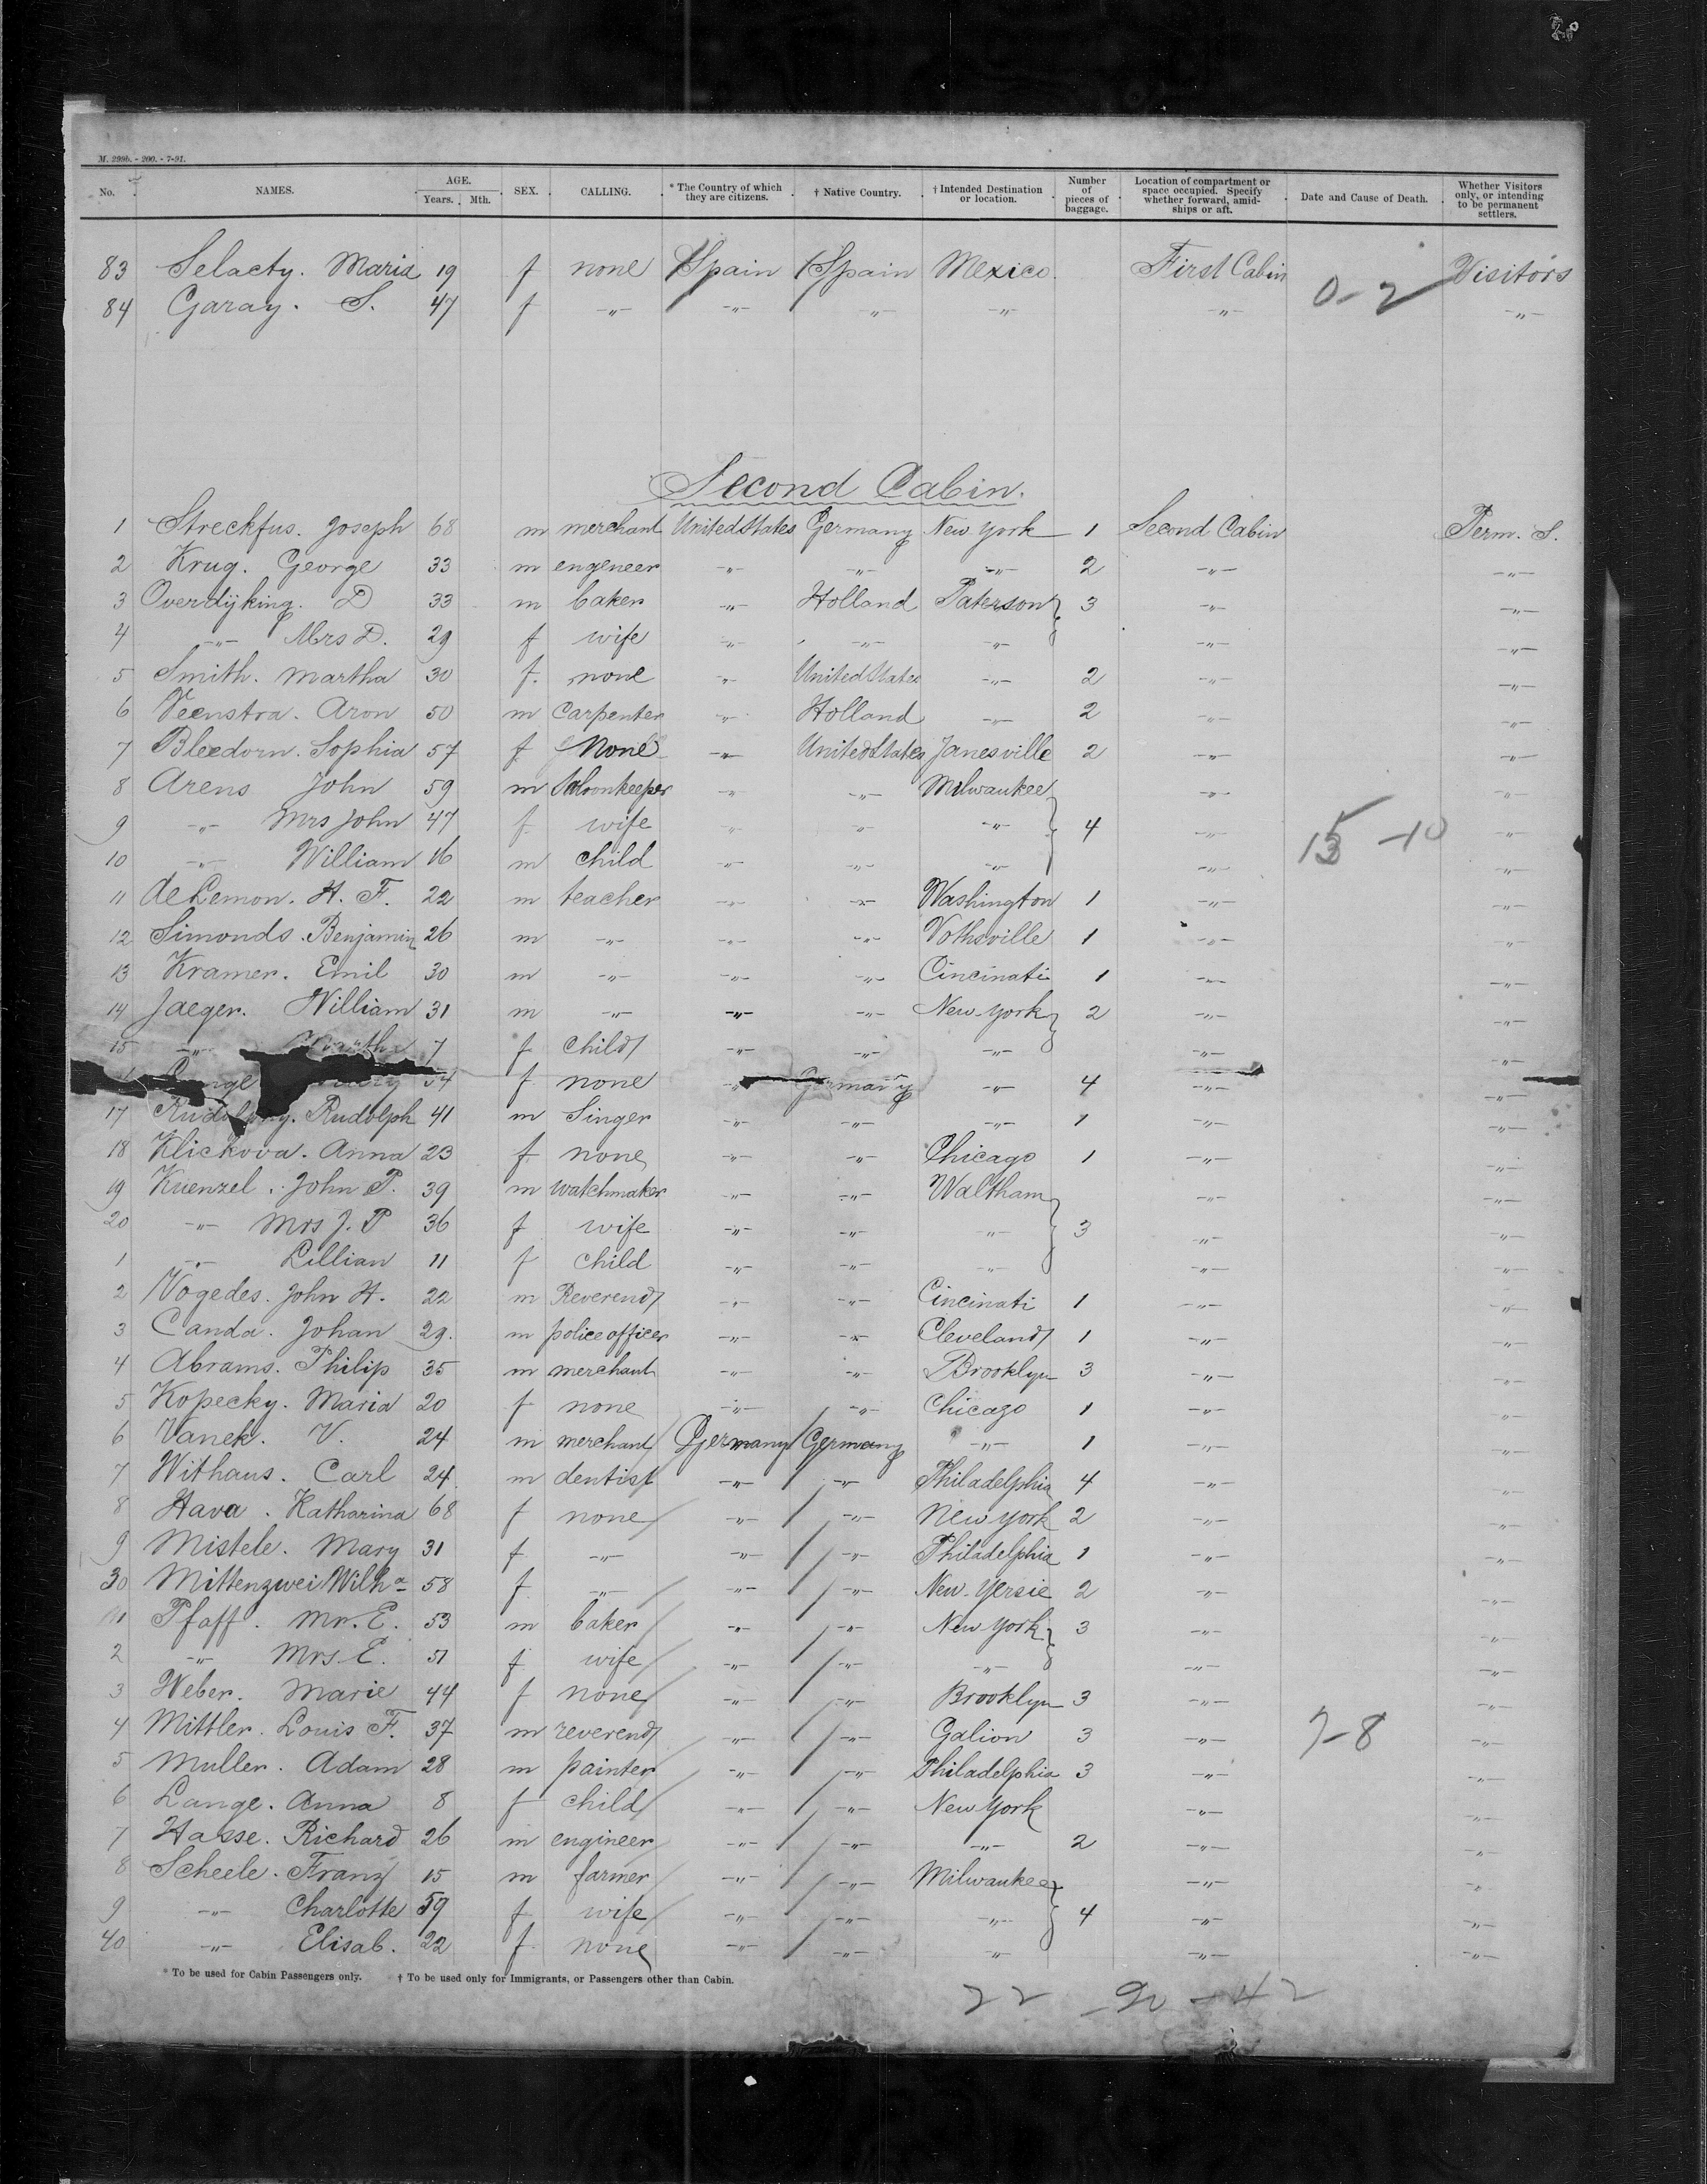 M. 299b. - 200. - 7-91.
No. NAMES. AGE. Years. Mth. SEX. CALLING. * The Country of which they are citizens. † Native Country. † Intended Destination or location. Number of pieces of baggage. Location of compartment or space occupied. Specify whether forward, amidships or aft. Date and Cause of Death. Whether Visitors only, or intending to be permanent settlers.
83 Selacty. Maria 19 f none Spain Spain Mexico. First Cabin 0-2 Visitors
84 Garay. S. 47 f -"- -"- -"- -"- -"- -"-
Second Cabin.
1 Streckfus. Joseph 68 m merchant United States Germany New York 1 Second Cabin Perm. S.
2 Krug. George 33 m engeneer -"- -"- -"- 2 -"- -"-
3 Overdijking. D 33 m baker -"- Holland Paterson 3 -"- -"-
4 -"- Mrs D. 29 f wife -"- -"- -"- -"- -"-
5 Smith. Martha 30 f. none -"- United States -"- 2 -"- -"-
6 Veenstra. Aron 50 m Carpenter -"- Holland -"- 2 -"- -"-
7 Bleedorn. Sophia 57 f None -"- United States Janesville 2 -"- -"-
8 Arens John 59 m Saloonkeeper -"- -"- Milwaukee -"- -"-
9 -"- Mrs John 47 f wife -"- -"- -"- 4 -"- 15 -10 -"-
10 -"- William 16 m child -"- -"- -"- -"- -"-
11 de Lemon. H. F. 22 m teacher -"- -"- Washington 1 -"- -"-
12 Simonds. Benjamin 26 m -"- -"- -"- Vothsville 1 -"- -"-
13 Kramer. Emil 30 m -"- -"- -"- Cincinati 1 -"- -"-
14 Jaeger. William 31 m -"- -"- -"- New-York 2 -"- -"-
15 -"- 7 f child -"- -"- -"- -"- -"-
54 f none -"- Germany -"- 4 -"- -"-
17 Rudolph 41 m Singer -"- -"- -"- 1 -"- -"-
18 Klickova. Anna 23 f none -"- -"- Chicago 1 -"- -"-
19 Kuenzel. John P. 39 m watchmaker -"- -"- Waltham -"- -"-
20 -"- Mrs J. P 36 f wife -"- -"- -"- 3 -"- -"-
1 -"- Lillian 11 f child -"- -"- -"- -"- -"-
2 Vogedes. John H. 22 m Reverend -"- -"- Cincinati 1 -"- -"-
3 Canda. Johan 29. m police officer -"- -"- Cleveland 1 -"- -"-
4 Abrams. Philip 35 m merchant -"- -"- Brooklyn 3 -"- -"-
5 Kopecky. Maria 20 f none -"- -"- Chicago 1 -"- -"-
6 Vanek. V. 24 m merchant Germany Germany -"- 1 -"- -"-
7 Withaus. Carl 24 m dentist -"- -"- Philadelphia 4 -"- -"-
8 Hava. Katharina 68 f none -"- -"- New York 2 -"- -"-
9 Mistele. Mary 31 f -"- -"- -"- Philadelphia 1 -"- -"-
30 Mittenzwei Wilha 58 f -"- -"- -"- New-Yersie 2 -"- -"-
1 Pfaff. Mr. E. 53 m baker -"- -"- New York 3 -"- -"-
2 -"- Mrs. E. 51 f wife -"- -"- -"- -"- -"-
3 Weber. Marie 44 f none -"- -"- Brooklyn 3 -"- -"-
4 Mittler. Louis F. 37 m reverend -"- -"- Galion 3 -"- 7-8 -"-
5 Muller. Adam 28 m painter -"- -"- Philadelphia 3 -"- -"-
6 Lange. Anna 8 f child -"- -"- New York -"- -"-
7 Hasse. Richard 26 m engineer -"- -"- -"- 2 -"- -"-
8 Scheele. Franz 15 m farmer -"- -"- Milwaukee -"- -"-
9 -"- Charlotte 59 f wife -"- -"- -"- 4 -"- -"-
40 -"- Elisab. 22 f. none -"- -"- -"- -"- -"-
* To be used for Cabin Passengers only. † To be used only for Immigrants, or Passengers other than Cabin.
22 - 20 - 42